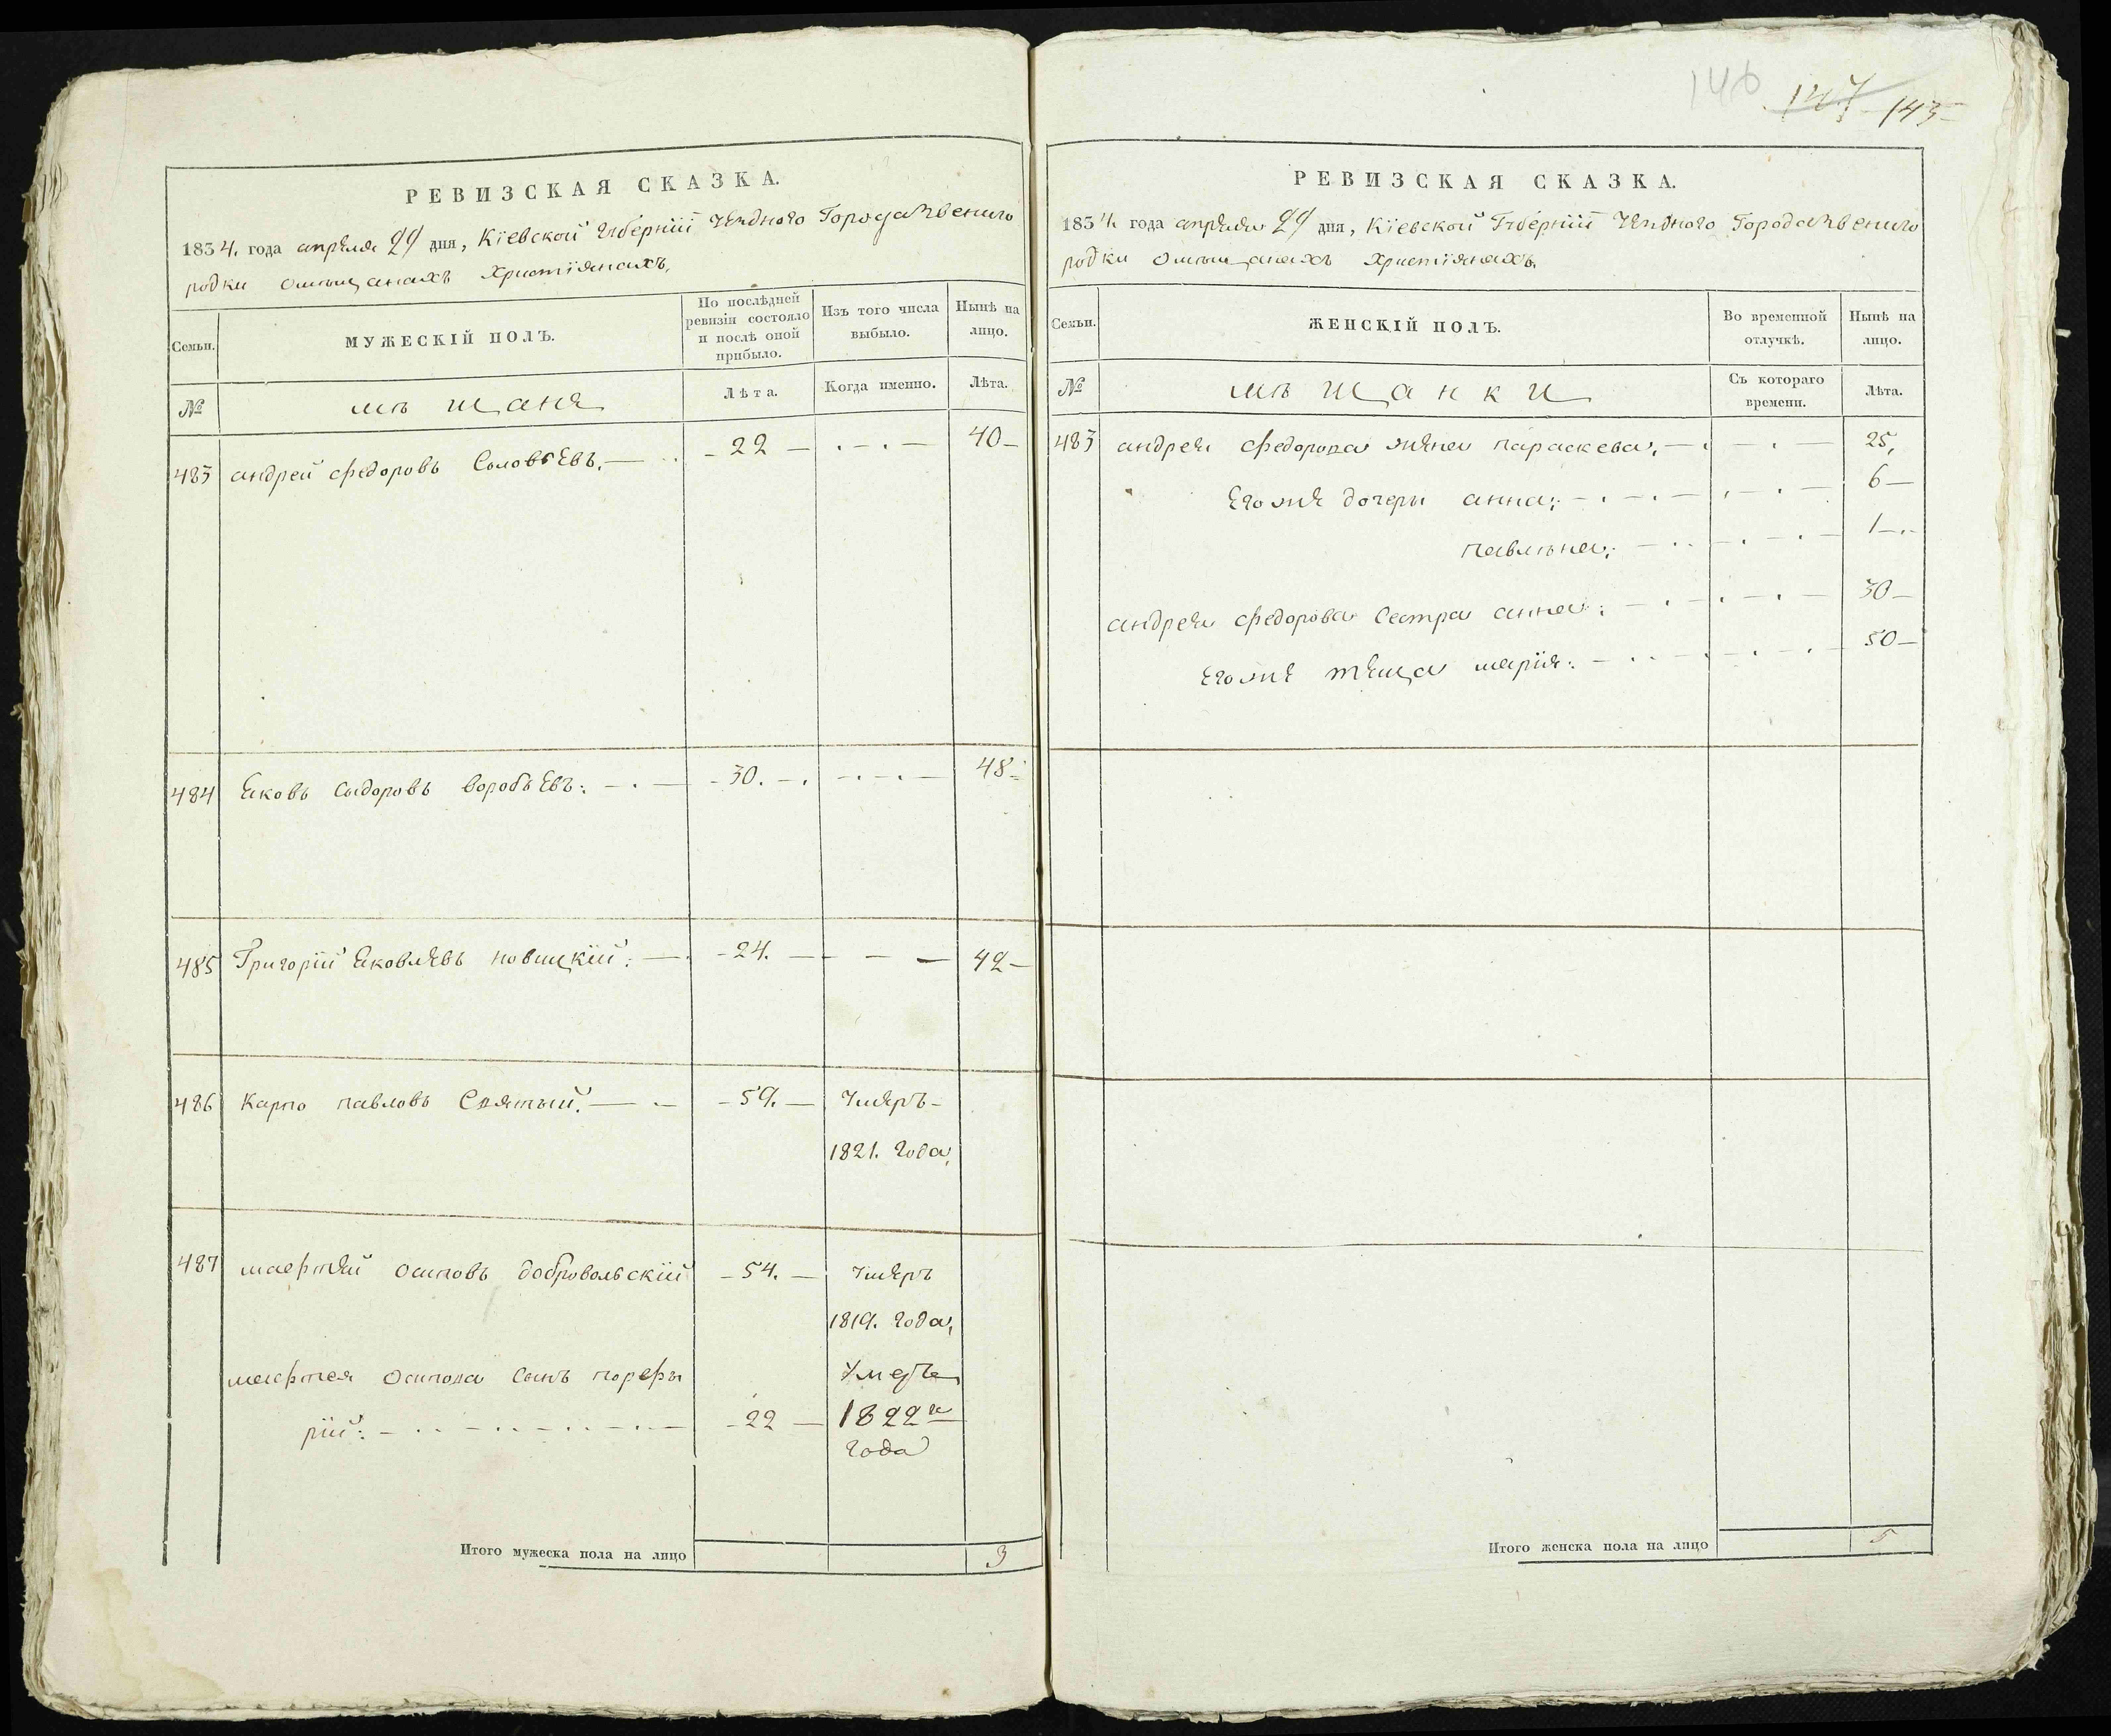 146 147 143
РЕВИЗСКАЯ СКАЗКА.
1834. года апреля 29 дня, Кіевской Губерніи Уездного Города Звениго
родки Омещанахъ Христіянахъ,
Семьи.
МУЖЕСКІЙ ПОЛЪ.
По послѣдней ревизіи состояло и послѣ оной прибыло.
Изъ того числа выбыло.
Нынѣ на лицо.
№
мещане
Лѣта.
Когда именно.
Лѣта.
483 андрей федоровъ Соловьевъ. 22 40
484 Яковъ Сидоровъ воробьевъ: 30. 48
485 Григорій Яковлевъ новицкій: 24. 42
486 Карпо павловъ Святый: 59. Умеръ
1821. года,
487 марфтей осиповъ добровольскій 54. Умеръ
1819. года,
марфтея Осипова Сынъ порфи
рій: 22 Умеръ
1822го
года
Итого мужеска пола на лицо 3
РЕВИЗСКАЯ СКАЗКА.
1834. года апреля 29 дня, Кіевской Губерніи Уездного Города Звениго
родки Омещанахъ Христіянахъ.
Семьи.
ЖЕНСКІЙ ПОЛЪ.
Во временной отлучкѣ.
Нынѣ на лицо.
№
мещанки
Съ котораго времени.
Лѣта.
483 андрея федорова жена параскева, 25,
Егоже дочери анна; 6
павлына; 1
андрея федорова Сестра анна: 30
Егоже теща марія: 50
Итого женска пола на лицо 5